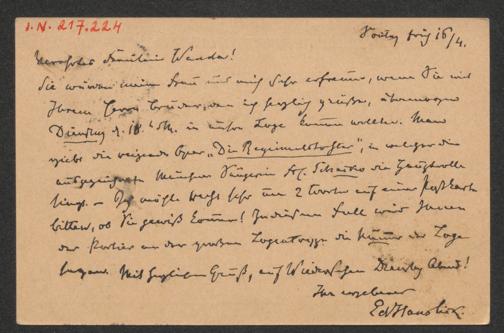 I.N. 217.224
Freitag früh 16/4.
Verehrtes Fräulein Wanda!
Sie würden meine Frau und mich sehr erfreuen, wenn Sie mit
Ihrem Herrn Bruder, den ich herzlich grüße, übermorgen
Dienstag d. 18. in unsre Loge kommen wollten. Man
giebt die reizende Oper „Die Regimentstochter", in welcher die
ausgezeichnete Münchner Sängerin die Hauptrolle
singt. – Ich möchte recht sehr um 2 Worte auf einer Postkarte
bitten, ob Sie gewiß kommen! In diesem Fall wird Ihnen
der Portier an der großen Logentreppe die Nummer der Loge
sagen. Mit herzlichem Gruß, auf Wiedersehen Dienstag Abend!
Ihr ergebener
Ed Hanslick.